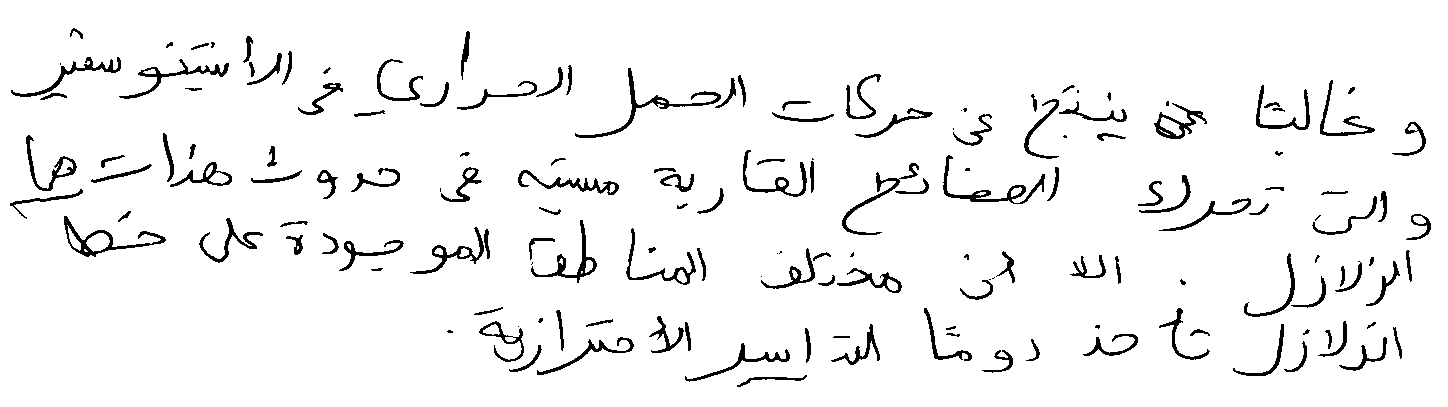 وغالبًا ينتج عن حركات الحمل الحراري في الأستينوسفير
والتي تحرك الصفائح القارية مسببة في حدوث هذا
الزلازل . الا أن مختلف المناطق الموجودة على خط
الزلازل تأخذ دومًا التدابير الاحترازية .